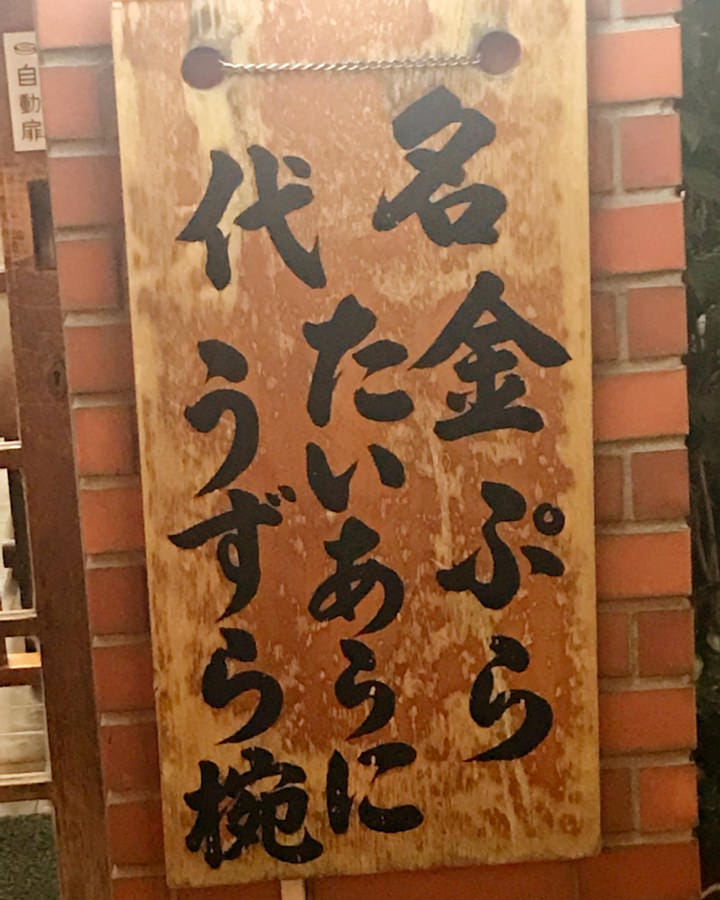 名代
金ぷら
たいあらに
うずら椀
自動扉